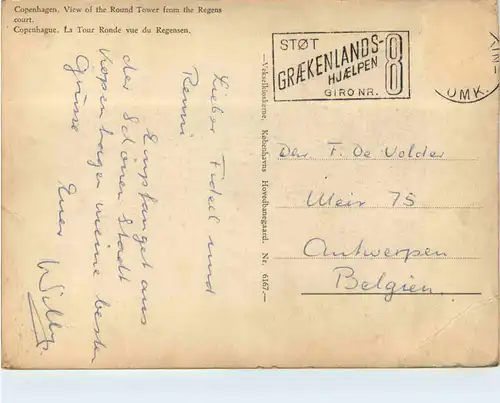 Copenhagen. View of the Round Tower from the Regens
court.
Copenhague. La Tour Ronde vue du Regensen.
Lieber Fideel und
Renni
Empfanget aus
der Schönen Stadt
Kopenhagen meine besten
Grüsse
Euer Willy.
—Vekselkioskerne, Københavns Hovedbanegaard. Nr. 6167.—
STØT
GRÆKENLANDS-
HJÆLPEN
GIRO NR. 8
OMK.
Der F. De Volder
Meir 75
Antwerpen
Belgien.